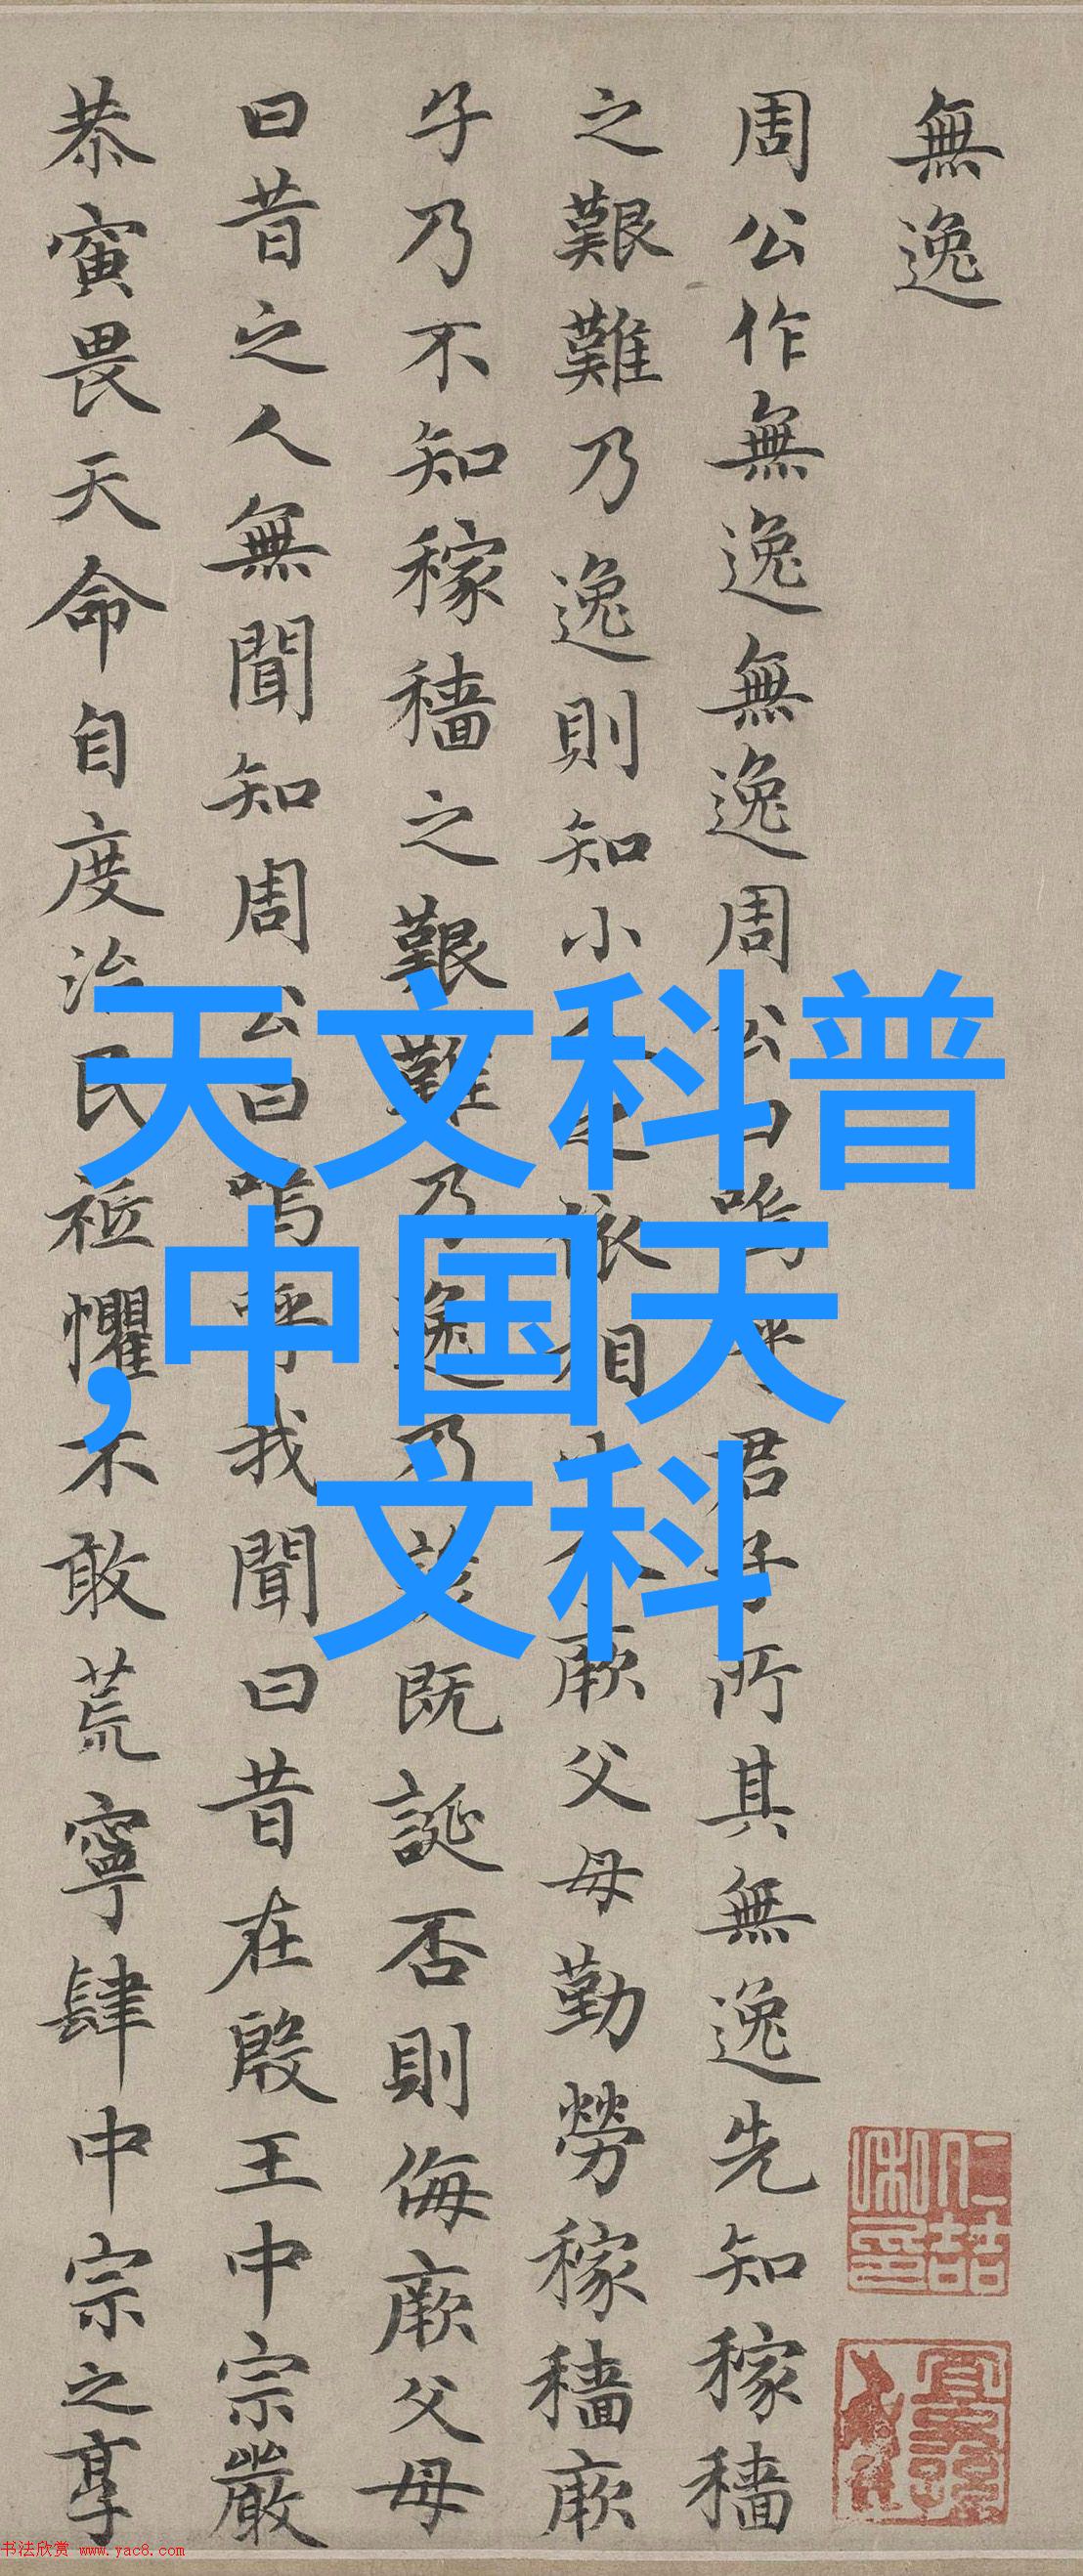 無逸
周公作無逸無逸周公曰嗚呼君子所其無逸先知稼穡
之艱難乃逸則知小之依相厥父母勤勞稼穡厥
子乃不知稼穡之艱難乃逸乃既誕否則侮厥父母
曰昔之人無聞知周公曰嗚呼我聞曰昔在殷王中宗嚴
恭寅畏天命自度治民祗懼不敢荒寧肆中宗之享
天文科普
,中国天
文科
书法欣赏 www.yac8.com